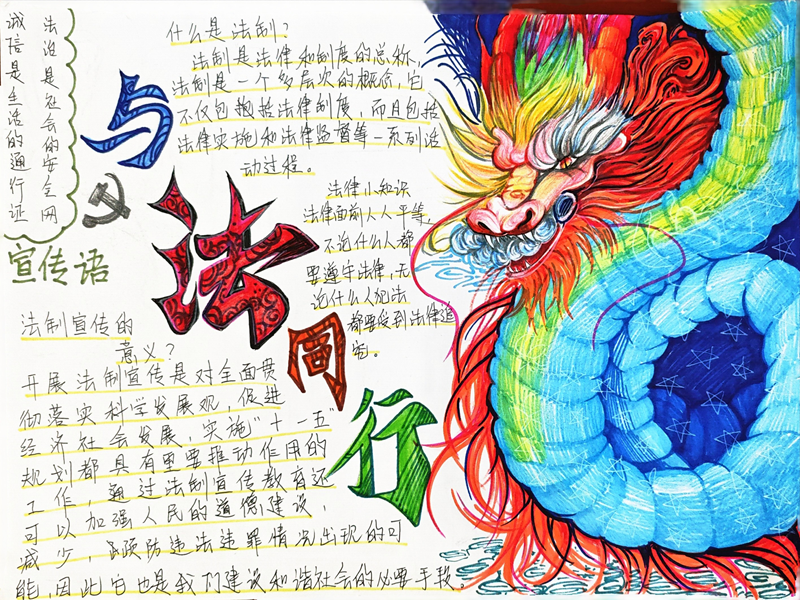 法治是社会的安全网
诚信是生活的通行证
宣传语
与
法
同
行
什么是法制?
法制是法律和制度的总称,
法制是一个多层次的概念,它
不仅包括法律制度,而且包括
法律实施和法律监督等一系列活
动过程。
法律小知识
法律面前人人平等,
不论什么人都
要遵守法律,无
论什么人犯法
都要受到法律追
究。
法制宣传的
意义?
开展法制宣传是对全面贯
彻落实科学发展观,促进
经济社会发展,实施"十一五"
规划都具有重要推动作用的
工作,通过法制宣传教育还
可以加强人民的道德建设,
减少,预防违法违罪情况出现的可
能,因此它也是我们建设和谐社会的必要手段.